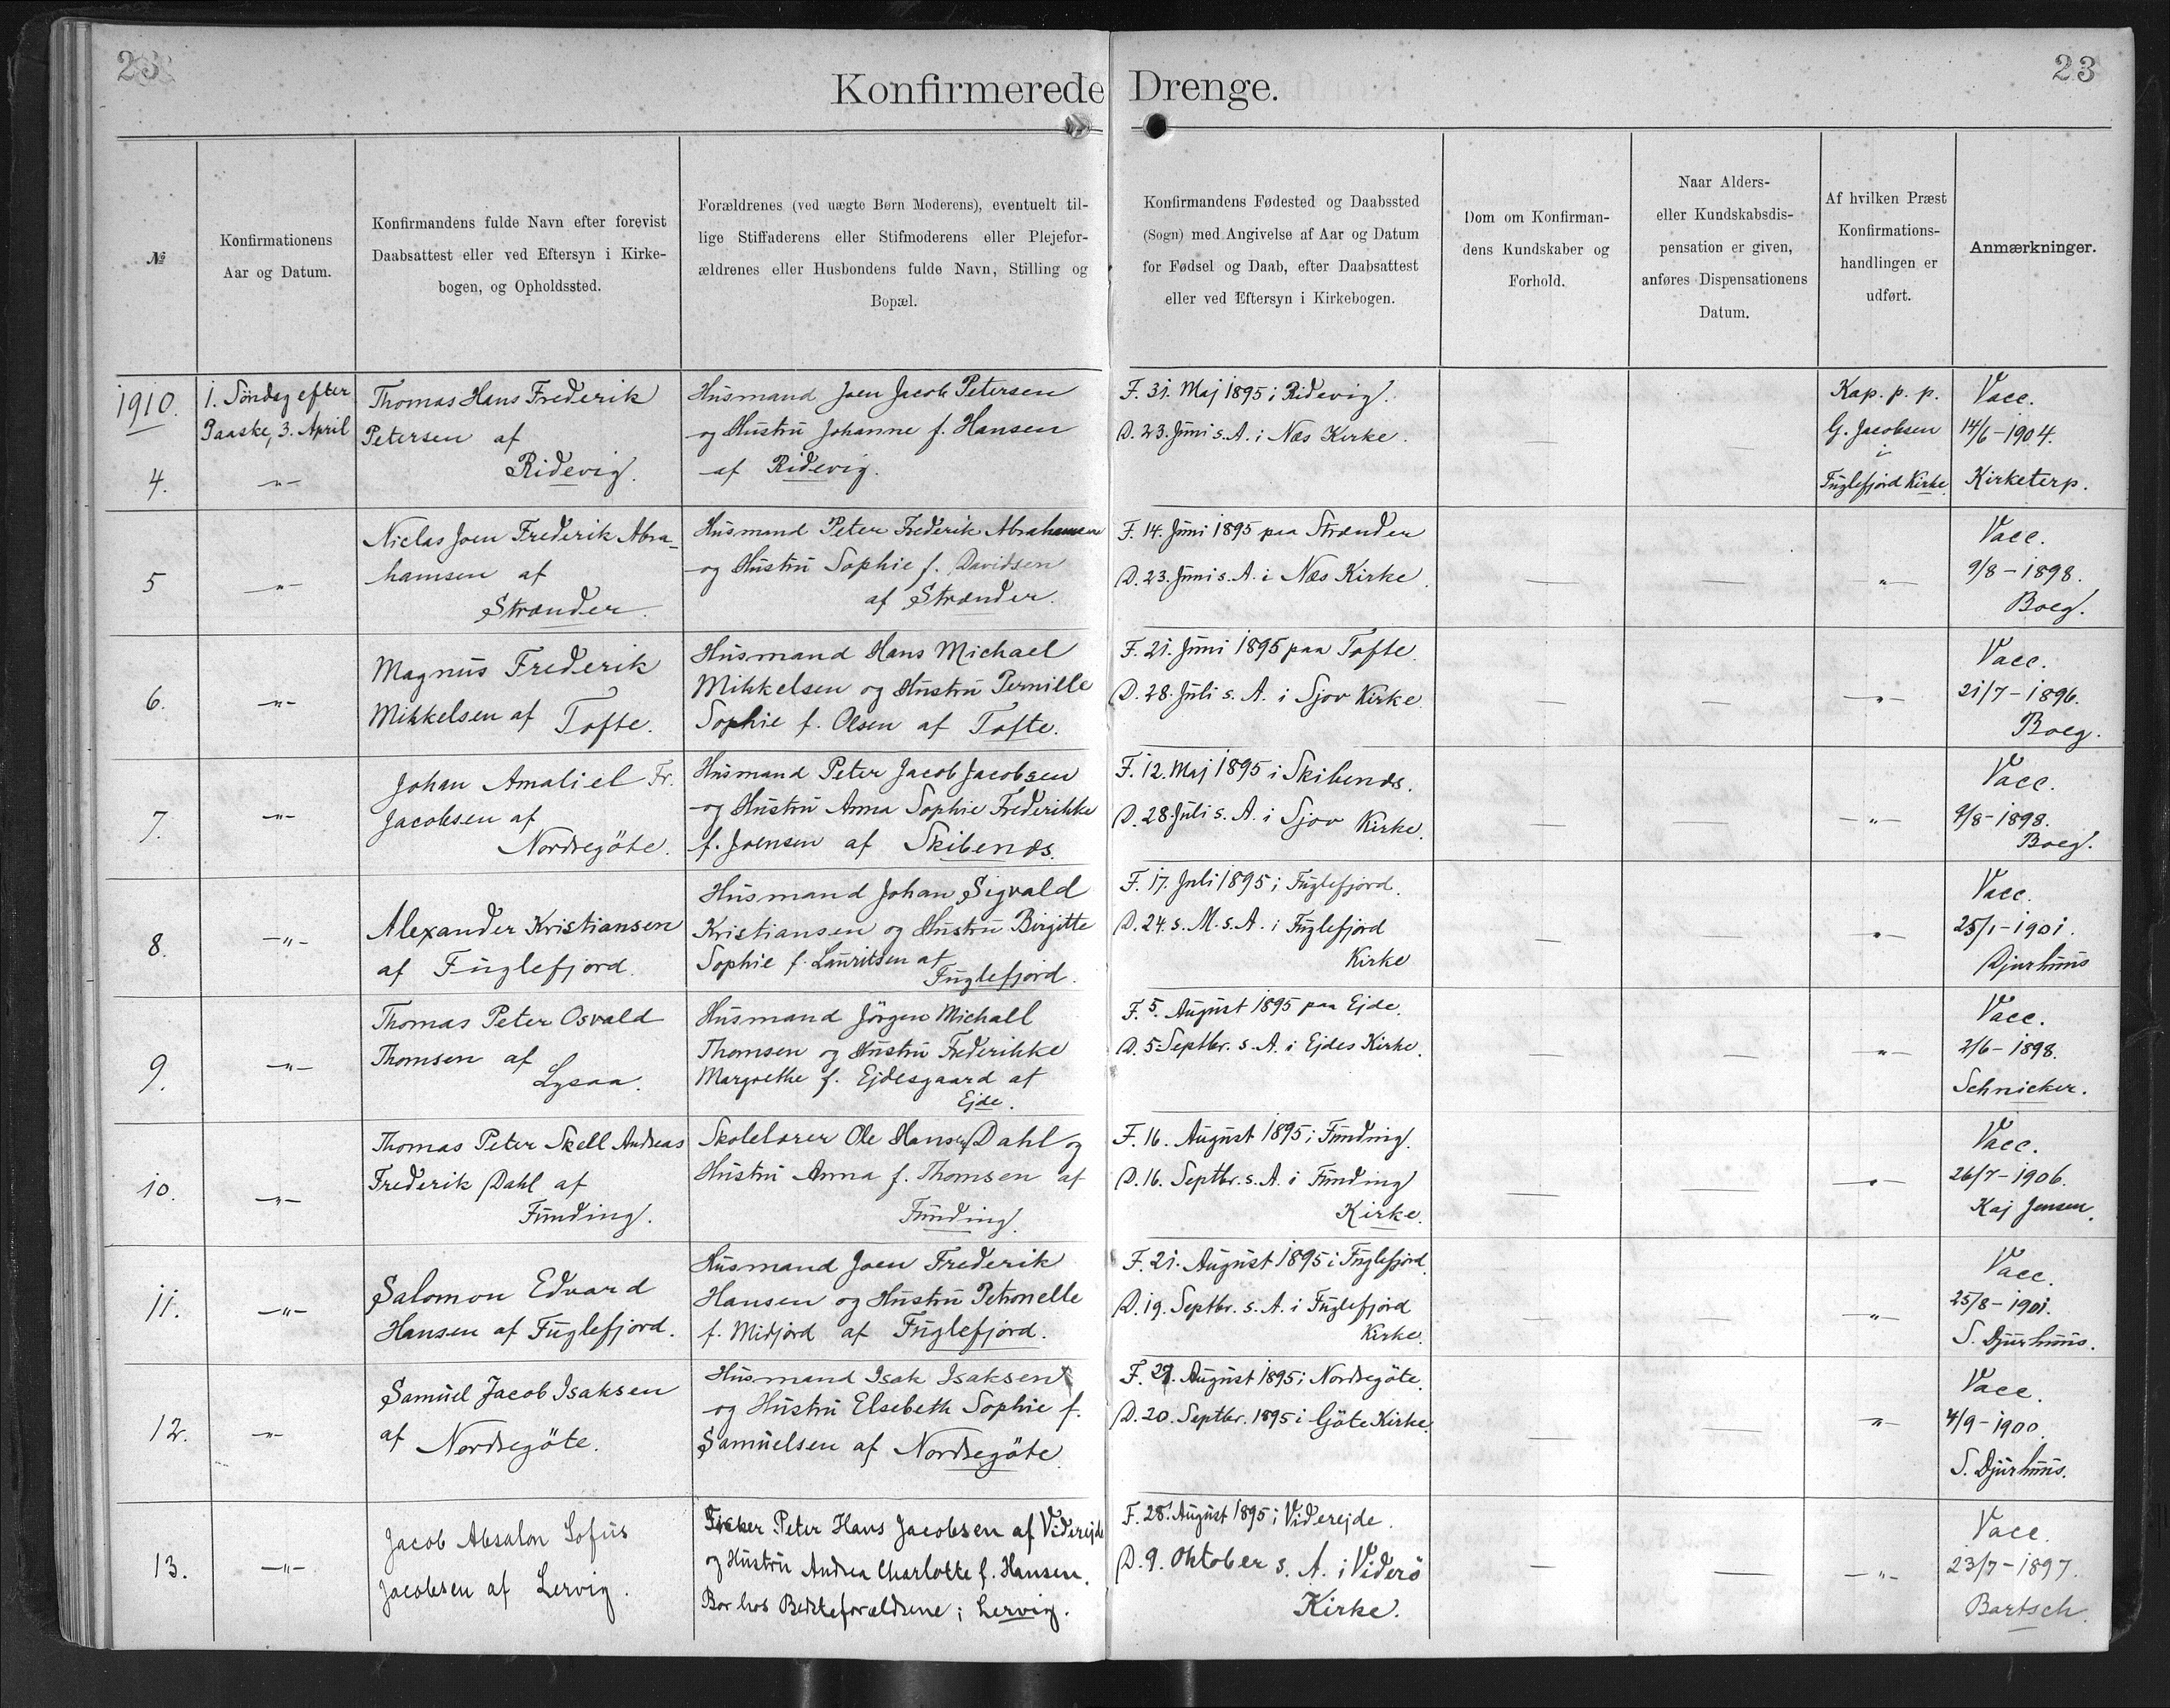 23
23
Konfirmerede Drenge.
№
Konfirmationens
Aar og Datum.
Konfirmandens fulde Navn efter forevist
Daabsattest eller ved Eftersyn i Kirke-
bogen, og Opholdssted.
Forældrenes (ved uægte Børn Moderens), eventuelt til-
lige Stiffaderens eller Stifmoderens eller Plejefor-
ældrenes eller Husbondens fulde Navn, Stilling og
Bopæl.
Konfirmandens Fødested og Daabssted
(Sogn) med Angivelse af Aar og Datum
for Fødsel og Daab, efter Daabsattest
eller ved Eftersyn i Kirkebogen.
Dom om Konfirman-
dens Kundskaber og
Forhold.
Naar Alders-
eller Kundskabsdis-
pensation er given,
anføres Dispensationens
Datum.
Af hvilken Præst
Konfirmations-
handlingen er
udført.
Anmærkninger.
1910.
4.
1. Söndag efter
Paaske, 3. April
-"-
Thomas Hans Frederik
Petersen af
Ridevig.
Husmand Joen Jacob Petersen
og Hustru Johanne f. Hansen
af Ridevig.
F. 31. Maj 1895 i Ridevig.
D. 23. Juni s. A. i Næs Kirke.
—
—
Kap. p. p.
G. Jacobsen
i
Fuglefjord Kirke
Vacc.
14/6-1904.
Kirketerp.
5
-"-
Niclas Joen Frederik Abra-
hamsen af
Strænder.
Husmand Peter Frederik Abrahamsen
og Hustru Sophie f. Davidsen
af Strænder.
F. 14. Juni 1895 paa Strænder
D. 23. Juni s. A. i Næs Kirke.
—
—
-"-
Vacc.
9/8-1898.
Boeg.
6.
-"-
Magnus Frederik
Mikkelsen af Tofte.
Husmand Hans Michael
Mikkelsen og Hustru Pernille
Sophie f. Olsen af Tofte.
F. 21. Juni 1895 paa Tofte.
D. 28. Juli s. A. i Sjov Kirke.
—
—
-"-
Vacc.
21/7-1896.
Boeg.
7.
-"-
Johan Amaliel Fr.
Jacobsen af
Nordregöte.
Husmand Peter Jacob Jacobsen
og Hustru Anna Sophie Frederikke
f. Joensen af Skibenæs.
F. 12. Maj 1895 i Skibenæs.
D. 28. Juli s. A. i Sjov Kirke.
—
—
-"-
Vacc.
9/8-1898.
Boeg.
8.
-"-
Alexander Kristiansen
af Fuglefjord.
Husmand Johan Sigvald
Kristiansen og Hustru Birgitte
Sophie f. Lauritsen af
Fuglefjord.
F. 17. Juli 1895 i Fuglefjord.
D. 24. s. M. s. A. i Fuglefjord
Kirke
—
—
-"-
Vacc.
25/1-1901.
Djurhuus
9.
-"-
Thomas Peter Osvald
Thomsen af
Lysaa.
Husmand Jörgen Michall
Thomsen og Hustru Frederikke
Margrethe f. Ejdesgaard af
Ejde.
F. 5. August 1895 paa Ejde.
D. 5. Septbr. s. A. i Ejdes Kirke.
—
—
-"-
Vacc.
2/6-1898.
Schnicker.
10.
-"-
Thomas Peter Skell Andreas
Frederik Dahl af
Funding.
Skolelærer Ole Hansen Dahl og
Hustru Anna f. Thomsen af
Funding.
F. 16. August 1895 i Funding.
D. 16. Septbr. s. A. i Funding
Kirke.
—
—
-"-
Vacc.
26/7-1906.
Kaj Jensen.
11.
-"-
Salomon Edvard
Hansen af Fuglefjord.
Husmand Joen Frederik
Hansen og Hustru Petronelle
f. Midjord af Fuglefjord.
F. 21. August 1895 i Fuglefjord.
D. 19. Septbr. s. A. i Fuglefjord
Kirke.
—
—
-"-
Vacc.
25/8-1901.
S. Djurhuus.
12.
-"-
Samuel Jacob Isaksen
af Nordregöte.
Husmand Isak Isaksen
og Hustru Elsebeth Sophie f.
Samuelsen af Nordregöte.
F. 27. August 1895 i Nordregöte.
D. 20. Septbr. 1895 i Göte Kirke.
—
—
-"-
Vacc.
4/9-1900.
S. Djurhuus.
13.
-"-
Jacob Absalon Sofus
Jacobsen af Lervig.
Fisker Peter Hans Jacobsen af Viderejde
og Hustru Andrea Charlotte f. Hansen.
Bor hos Bedsteforældrene i Lervig.
F. 28. August 1895 i Viderejde.
D. 9. Oktober s. A. i Viderö
Kirke.
—
—
-"-
Vacc.
23/7-1897.
Bartsch.